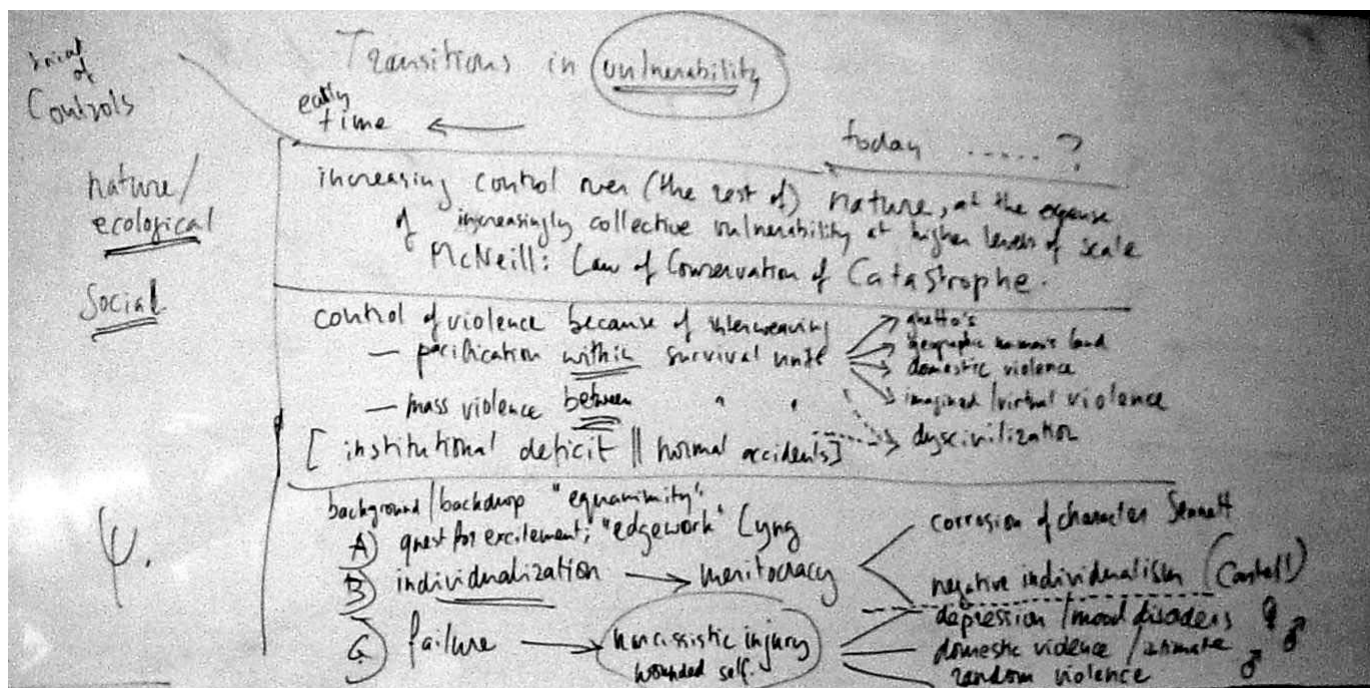 Transitions in vulnerability
triad of
Controls
early
time ←
today ..... ?
nature/
ecological
increasing control over (the rest of) nature, at the expense
of increasingly collective vulnerability at higher levels of scale
McNeill: Law of Conservation of Catastrophe.
Social
control of violence because of interweaving
— pacification within survival units
— mass violence between " "
[institutional deficit || normal accidents]
ghetto's
geographic no man's land
domestic violence
imagined/virtual violence
dyscivilization
ψ.
background/backdrop "equanimity".
A) quest for excitement; "edgework" Lyng
B) individualization → meritocracy
C) failure → narcissistic injury
wounded self.
corrosion of character Sennett
negative individualism (Castell)
depression/mood disoders ♀ ♂
domestic violence/intimate ♂
random violence